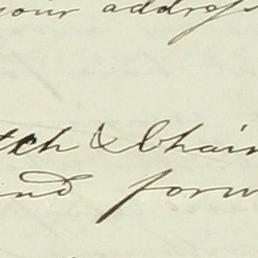 your address
tch & Chain
and forw